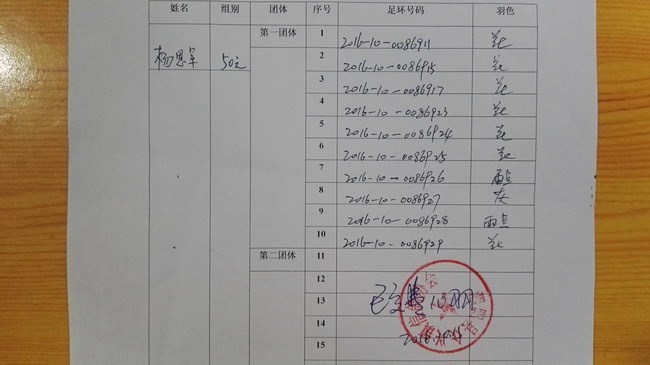 姓名 组别 团体 序号 足环号码 羽色
第一团体 1 2016-10-0086911 花
杨恩军 50元 2 2016-10-0086915 花
3 2016-10-0086917 花
4 2016-10-0086923 花
5 2016-10-0086924 花
6 2016-10-0086925 花
7 2016-10-0086926 雨点
8 2016-10-0086927 灰
9 2016-10-0086928 雨点
10 2016-10-0086929 花
第二团体 11
12
13
14
15